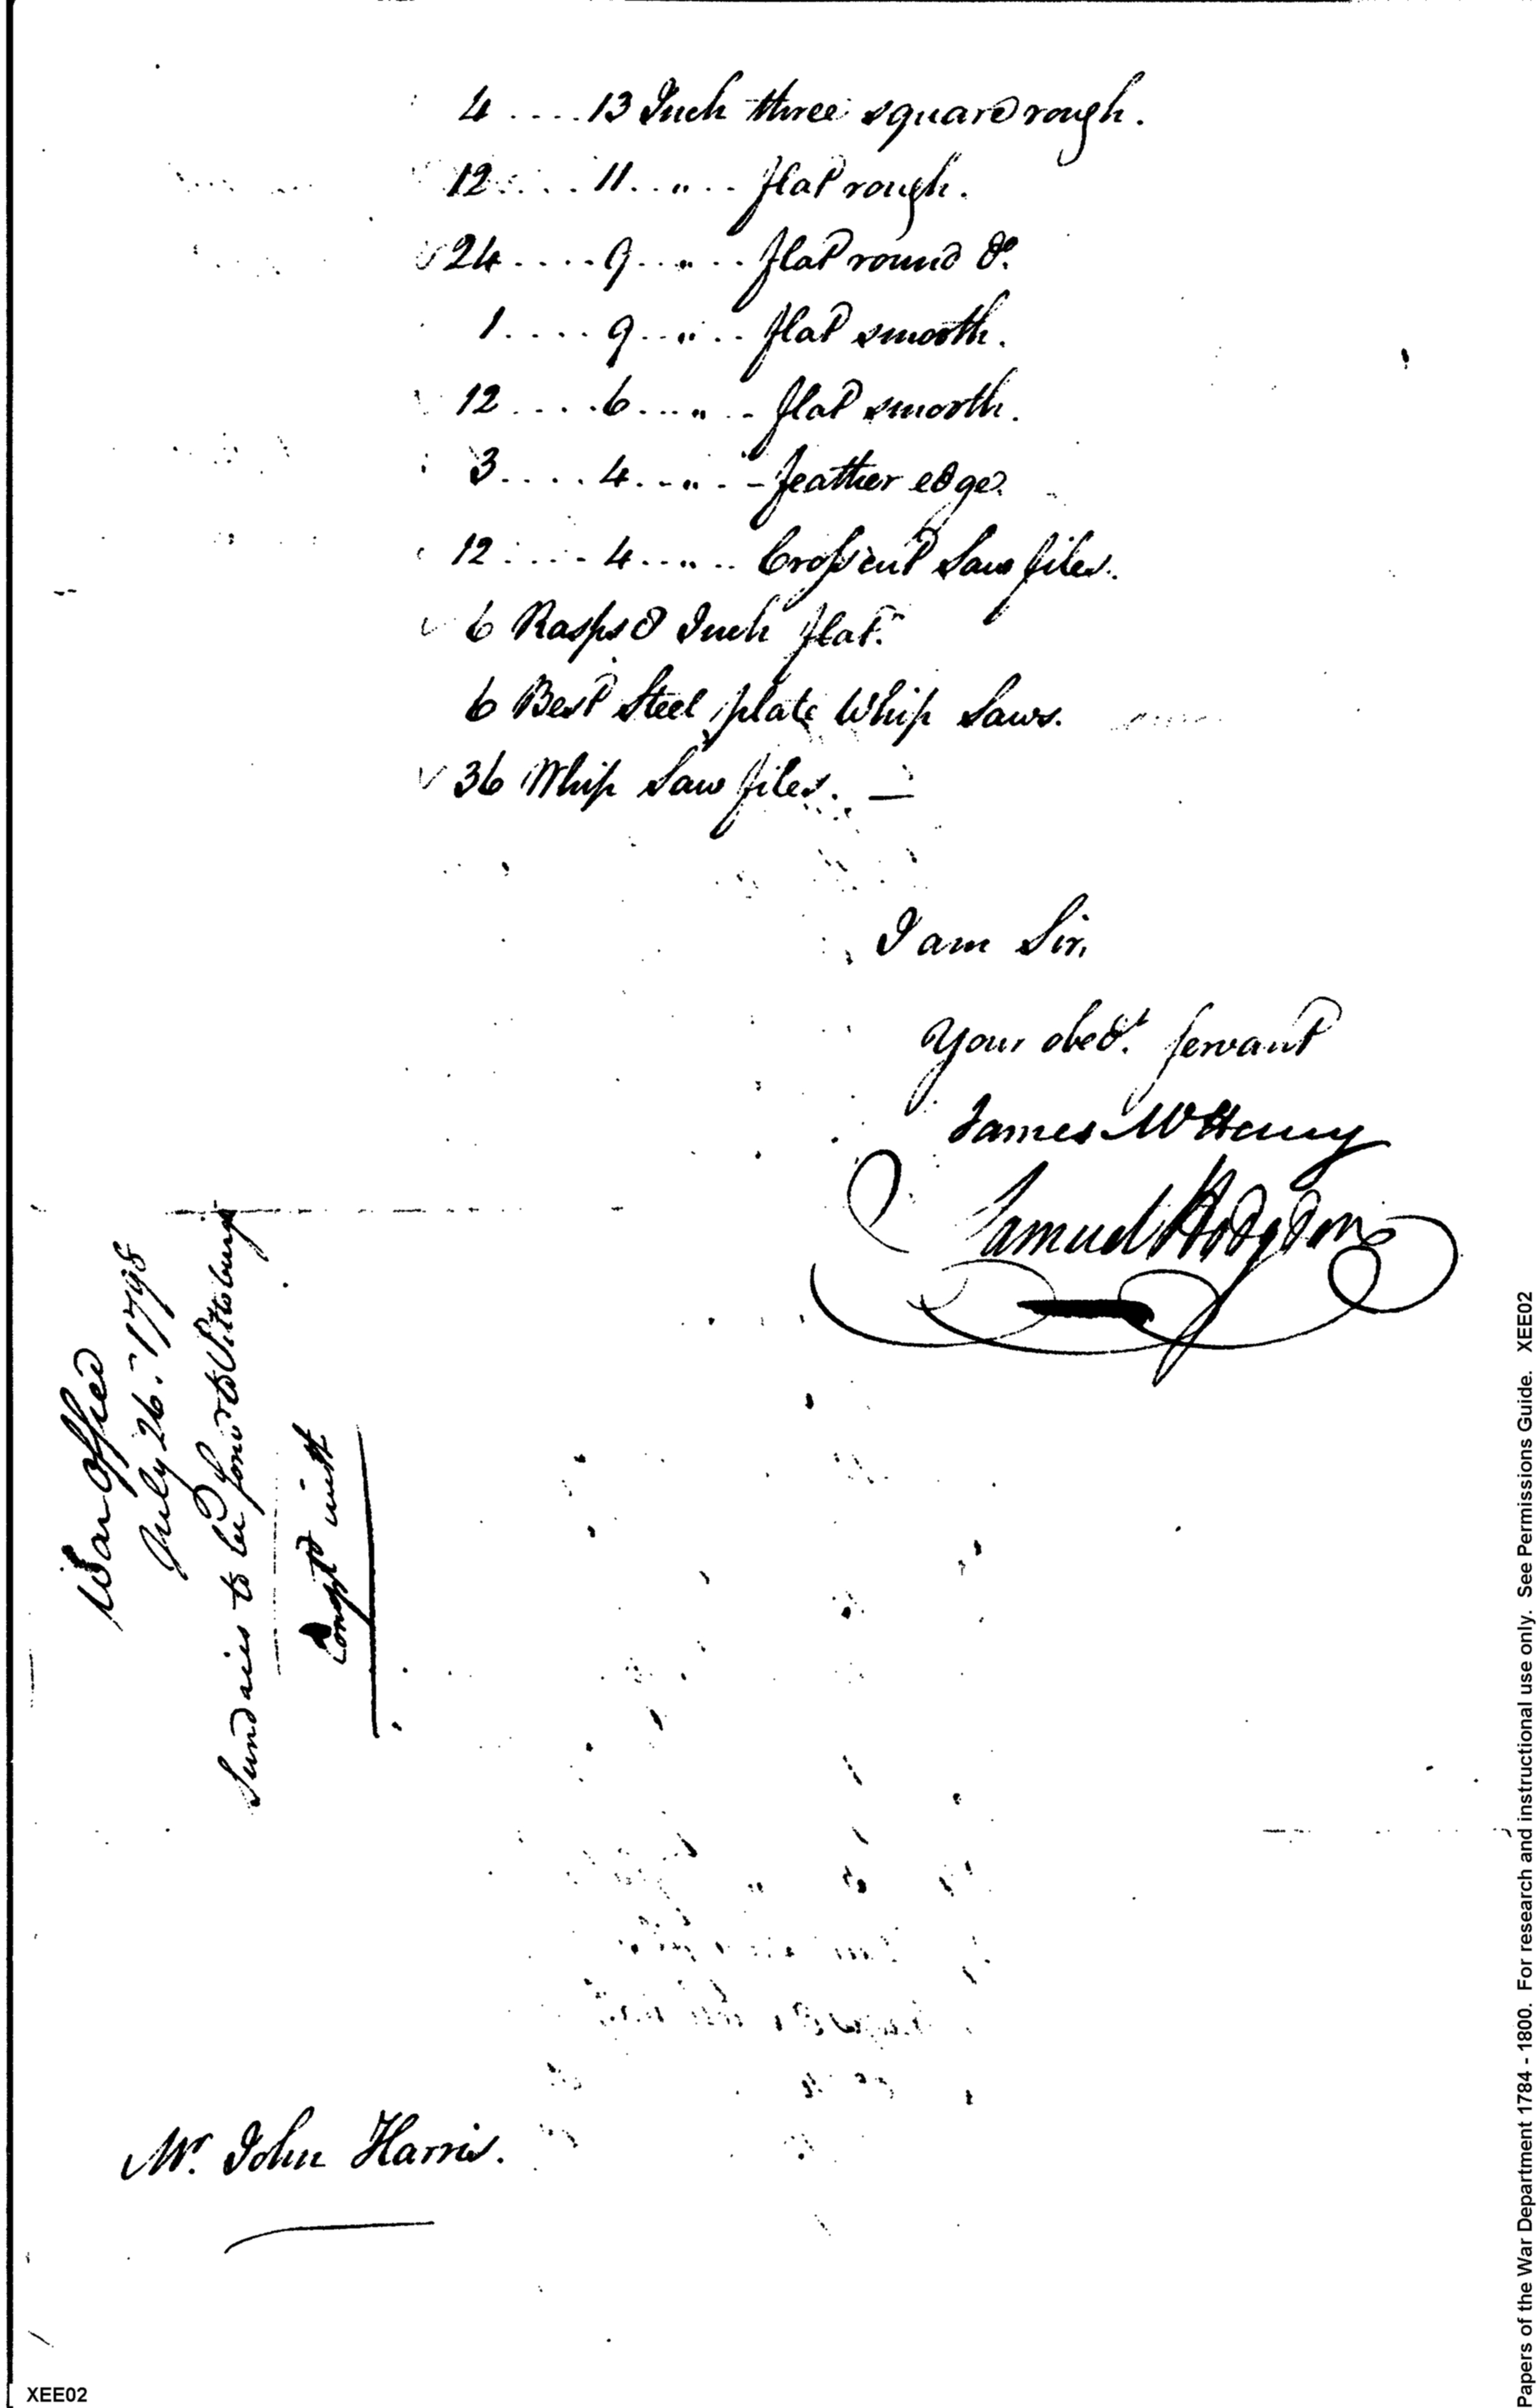 4 .... 13 Inch three square rough.
12 .... 11 .. " .. flat rough.
24 .... 9 ... " .. flat round do.
1 .... 9 ... " .. flat smooth.
12 .... 6 ... " .. flat smooth.
3 .... 4 ... " .. feather edge.
12 .... 4 ... " .. Cross cut Saw files.
6 Rasps 8 Inch flat.
6 Best Steel plate Whip Saws.
36 Whip Saw files. —
I am Sir,
Your obedt. servant
James McHenry
Samuel Hodgdon
War Office
July 26. 1798
Sundries to be forwd to Pittsburgh
Compd with
Mr. John Harris.
Papers of the War Department 1784 - 1800. For research and instructional use only. See Permissions Guide. XEE02
XEE02